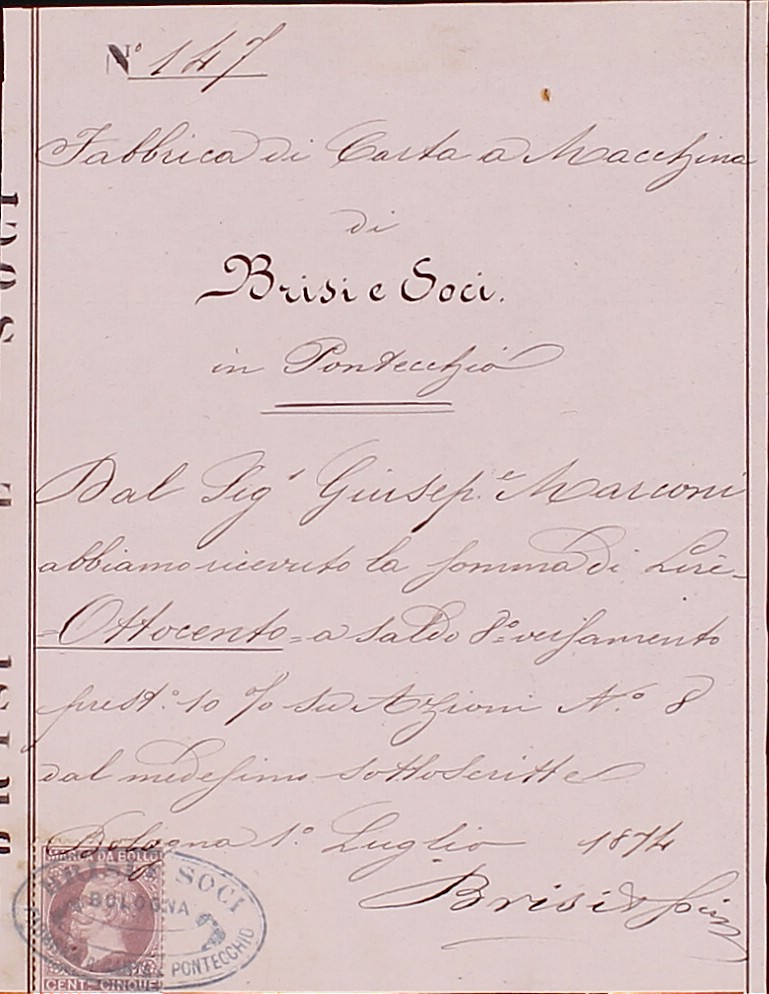 N.º 147
Fabbrica di Carta a Macchina
di
Brisi e Soci.
in Pontecchio
Dal Sig.r Giusep.e Marconi
abbiamo ricevuto la somma di Lire
=Ottocento= a saldo 8º versamento
prest.º 10 % su Azioni N.º 8
dal medesimo sottoscritte
Bologna 1.º Luglio 1874
Brisi &
MARCA DA BOLLO
BRISI E SOCI
BOLOGNA
PONTECCHIO
CENT. CINQUE
BRISI E SOCI